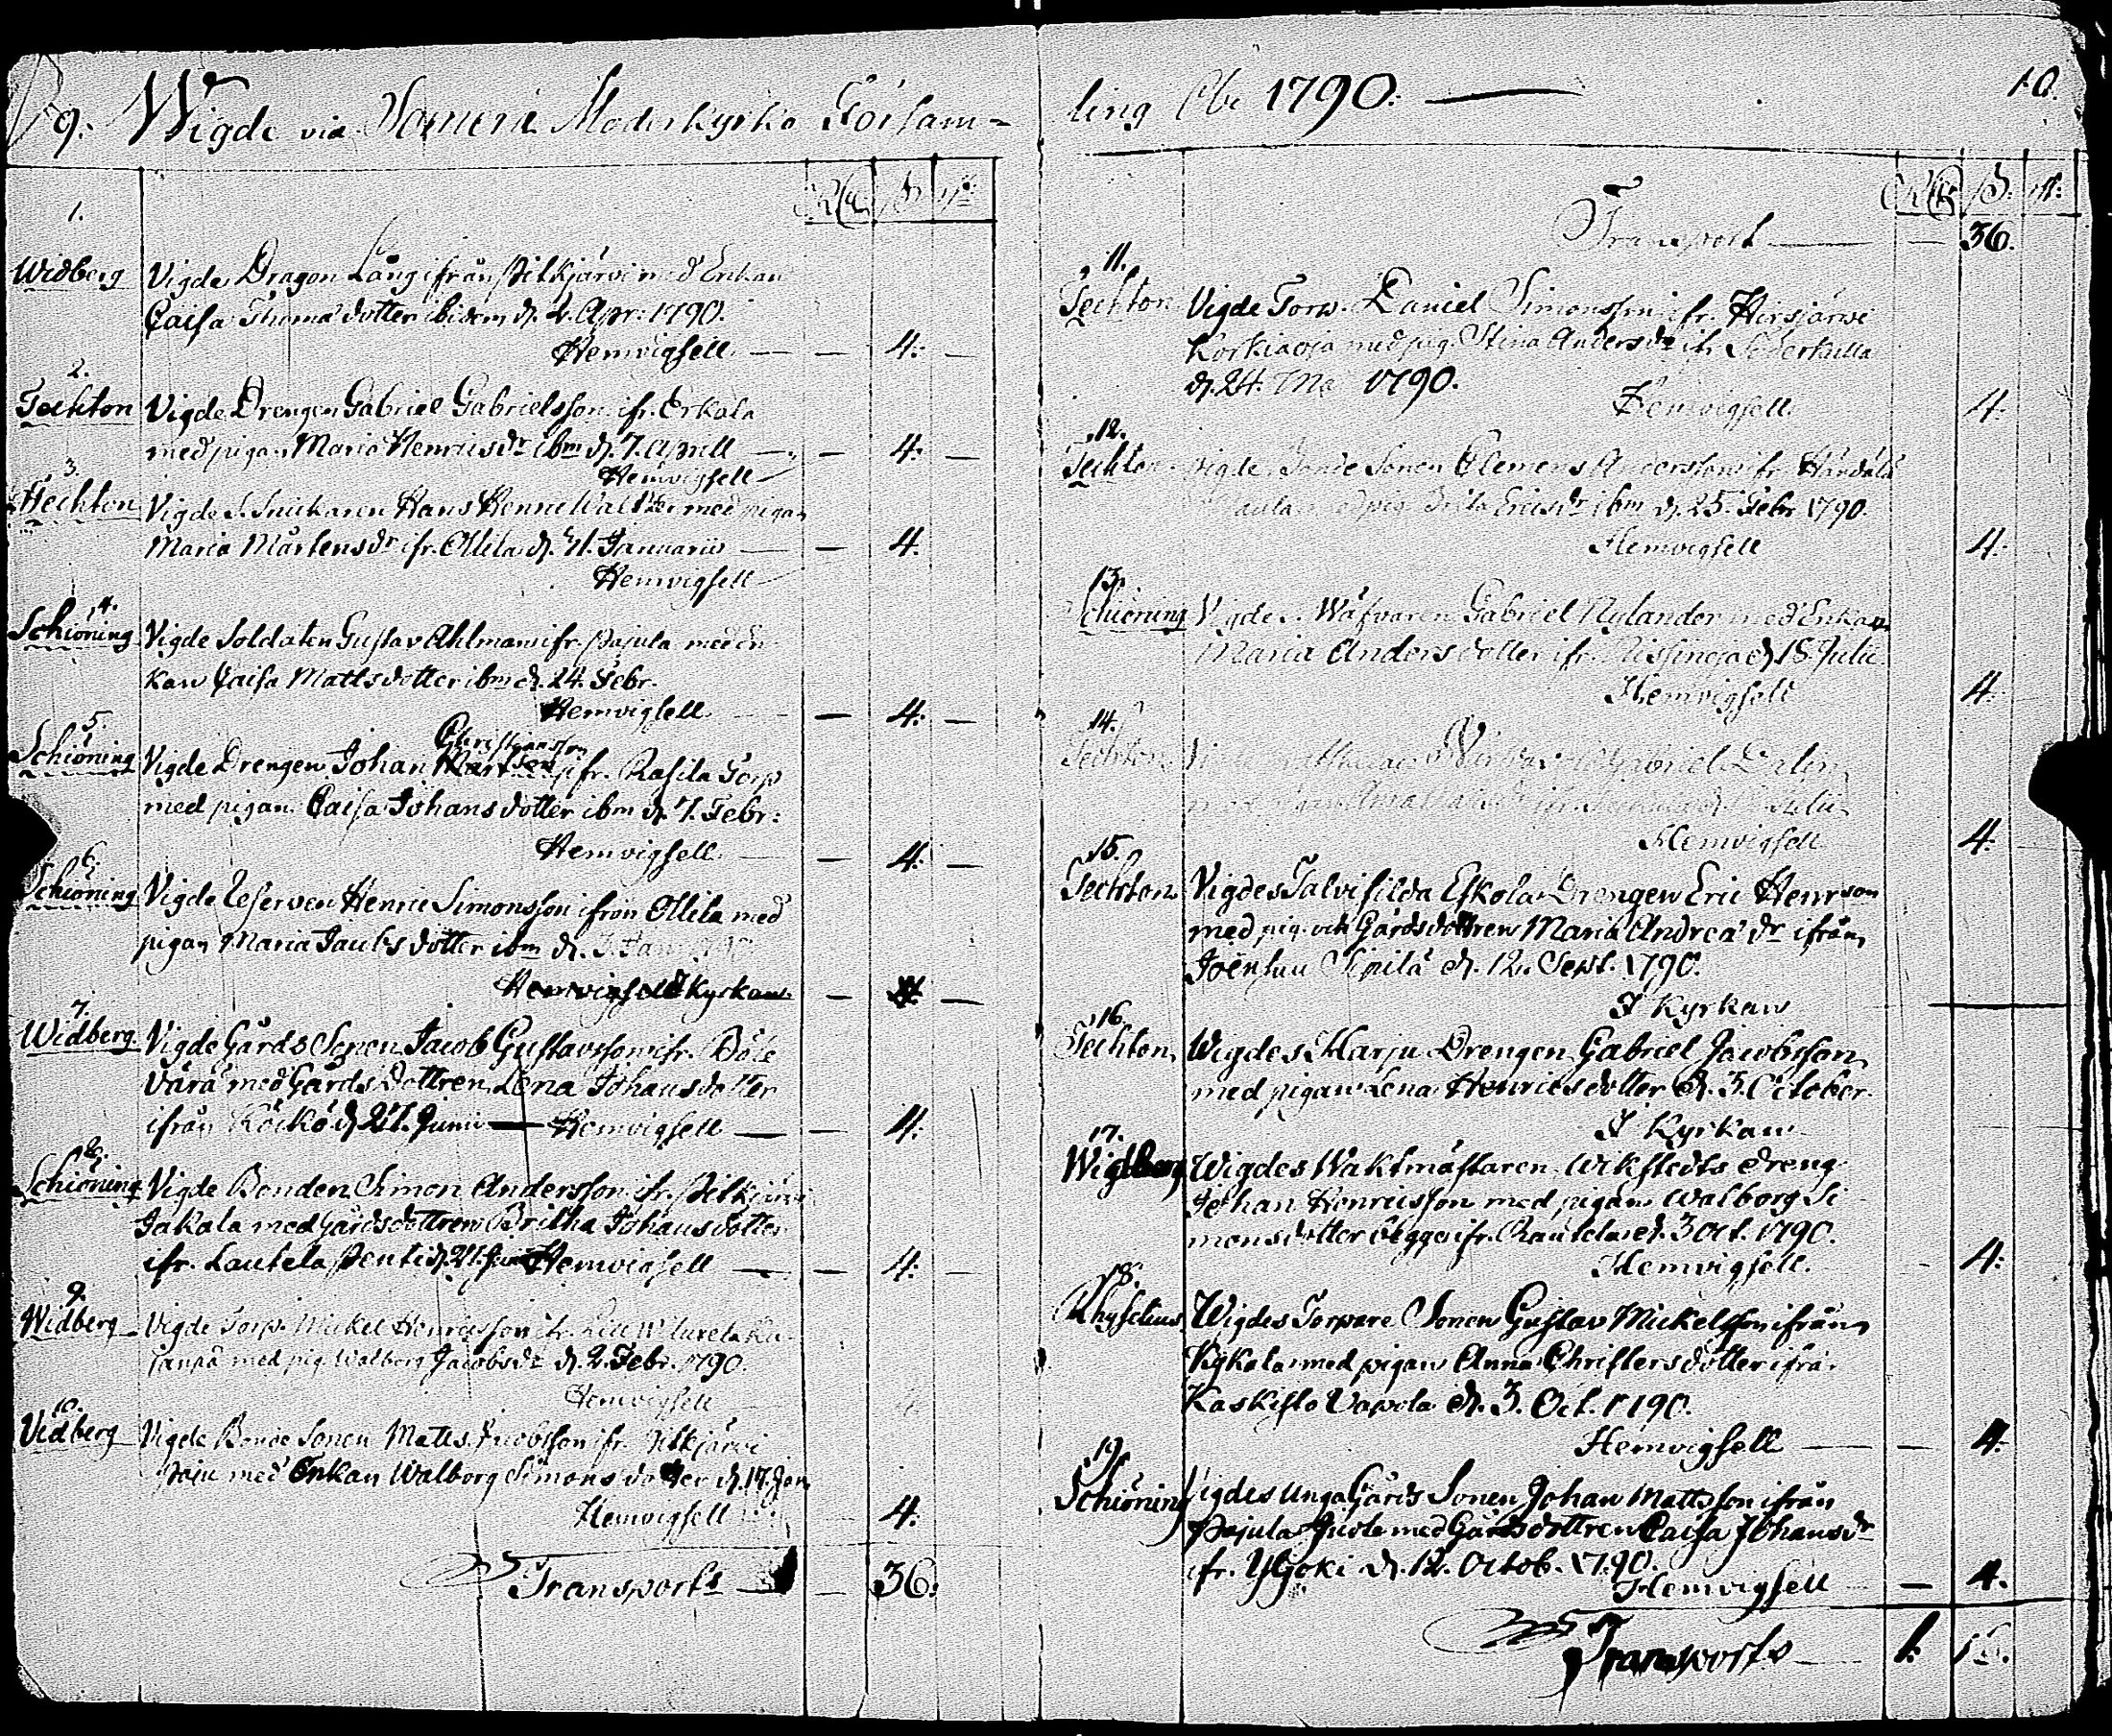 9. Wigde vid Somero Moderkyrko Församling Åhr 1790.
10.
1.
Widberg Vigde Dragon Lång ifrån Pitkjärvi med Enkan
Caisa Thoma dotter ibidem d. 2. Apr. 1790.
Hemvigsell — — 4. —
2.
Techton Vigde Drengen Gabriel Gabrielsson ifr. Erkala
med pigan Maria Henricsdr ibm d. 7. Aprill — — 4. —
Hemvigsell
3.
Techton Vigde S. Snickaren Hans Henric Walster med pigan
Maria Mårtensdr ifr. Ollila d. Januarii — — 4.
Hemvigsell
4.
Schiöning Vigde Soldaten Gustav Ahlman ifr. Pajula med En-
kan Caisa Matts dotter ibm d. 24. Febr.
Hemvigsell — 4. —
5.
Christiansson
Schiöning Vigde Drengen Johan ifr. Rasila Torp
med pigan Caisa Johans dotter ibm d. 7. Febr:
Hemvigsell — 4. —
6.
Schiöning Vigde Henric Simonsson ifrån Ollila med
pigan Maria Jacobs dotter ibm d.
Hemvigsell Kyrkan — 4. —
7.
Widberg Vigde Gårds Sonen Jacob Gustavsson ifr. Böle
Vårä med Gårds Dottren Lena Johansdotter
ifrån d. 27. Junii — Hemvigsell — — 4.
8.
Schiöning Vigde Bonden Simon Andersson ifr. Pitkjärvi
Jakala med Gårdsdottren Britha Johansdotter
ifr. Lautela Penti d. Hemvigsell — — 4. —
9.
Widberg Vigde Torp. Mickel Henricsson ifr.
med pig. Walborg Jacobsdr d. 2. Febr. 1790.
Hemvigsell
10.
Vidberg Vigde Bonde Sonen Matts Jacobsson ifr. Pitkjärvi
Paju med Enkan Walborg Simons dotter d. 17. Jan
Hemvigsell 4.
Transport — — 36.
Transport — — 36.
11.
Techton Vigde Torp. Daniel Simonsson ifr. Hirsjärvi
Korkiaoja med pig. Stina Andersdr ifr. Söderkulla
d. 24. 1790.
Hemvigsell 4.
12.
Techton Vigde Bonde Sonen Clemens Andersson ifr. Härdälä
pig. Brita Ericsdr ibm d. 25. Febr 1790.
Hemvigsell 4.
13.
Schiöning Vigde S. Wäfvaren Gabriel Nylander med Enkan
Maria Anders dotter ifr. d. 18. Julii
Hemvigsell 4.
14.
Techton Gabriel
Julii
Hemvigsell 4.
15.
Techton Vigdes Talvisilda Eskola Drengen Eric Henrson
med pig. och Gårdsdottren Maria Andreæ dr ifrån
Joensuu Sipilä d. 12. Sept. 1790.
I Kyrkan
16.
Techton Wigdes Harju Drengen Gabriel Jacobsson
med pigan Lena Henricsdotter d. 3. October.
I Kyrkan
17.
Widberg Wigdes Waktmästaren Wikstedts dreng
Johan Henricsson med pigan Walborg Si-
monsdotter begge ifr. Rautela d. 3 Oct. 1790.
Hemvigsell. 4.
18.
Rhyselius Wigdes Torpare Sonen Gustav Mickelsson ifrån
Kykala med pigan Anna Christers dotter ifrå.
Kaskisto Vapola d. 3. Oct. 1790.
Hemvigsell — — 4.
19.
Schiöning Vigdes unga Gårds Sonen Johan Mattsson ifrån
Pajula med Gårdsdottren Caisa Johansdr
ifr. Ylijoki d. 12. Octob. 1790.
Hemvigsell — 4.
Transport — 1.